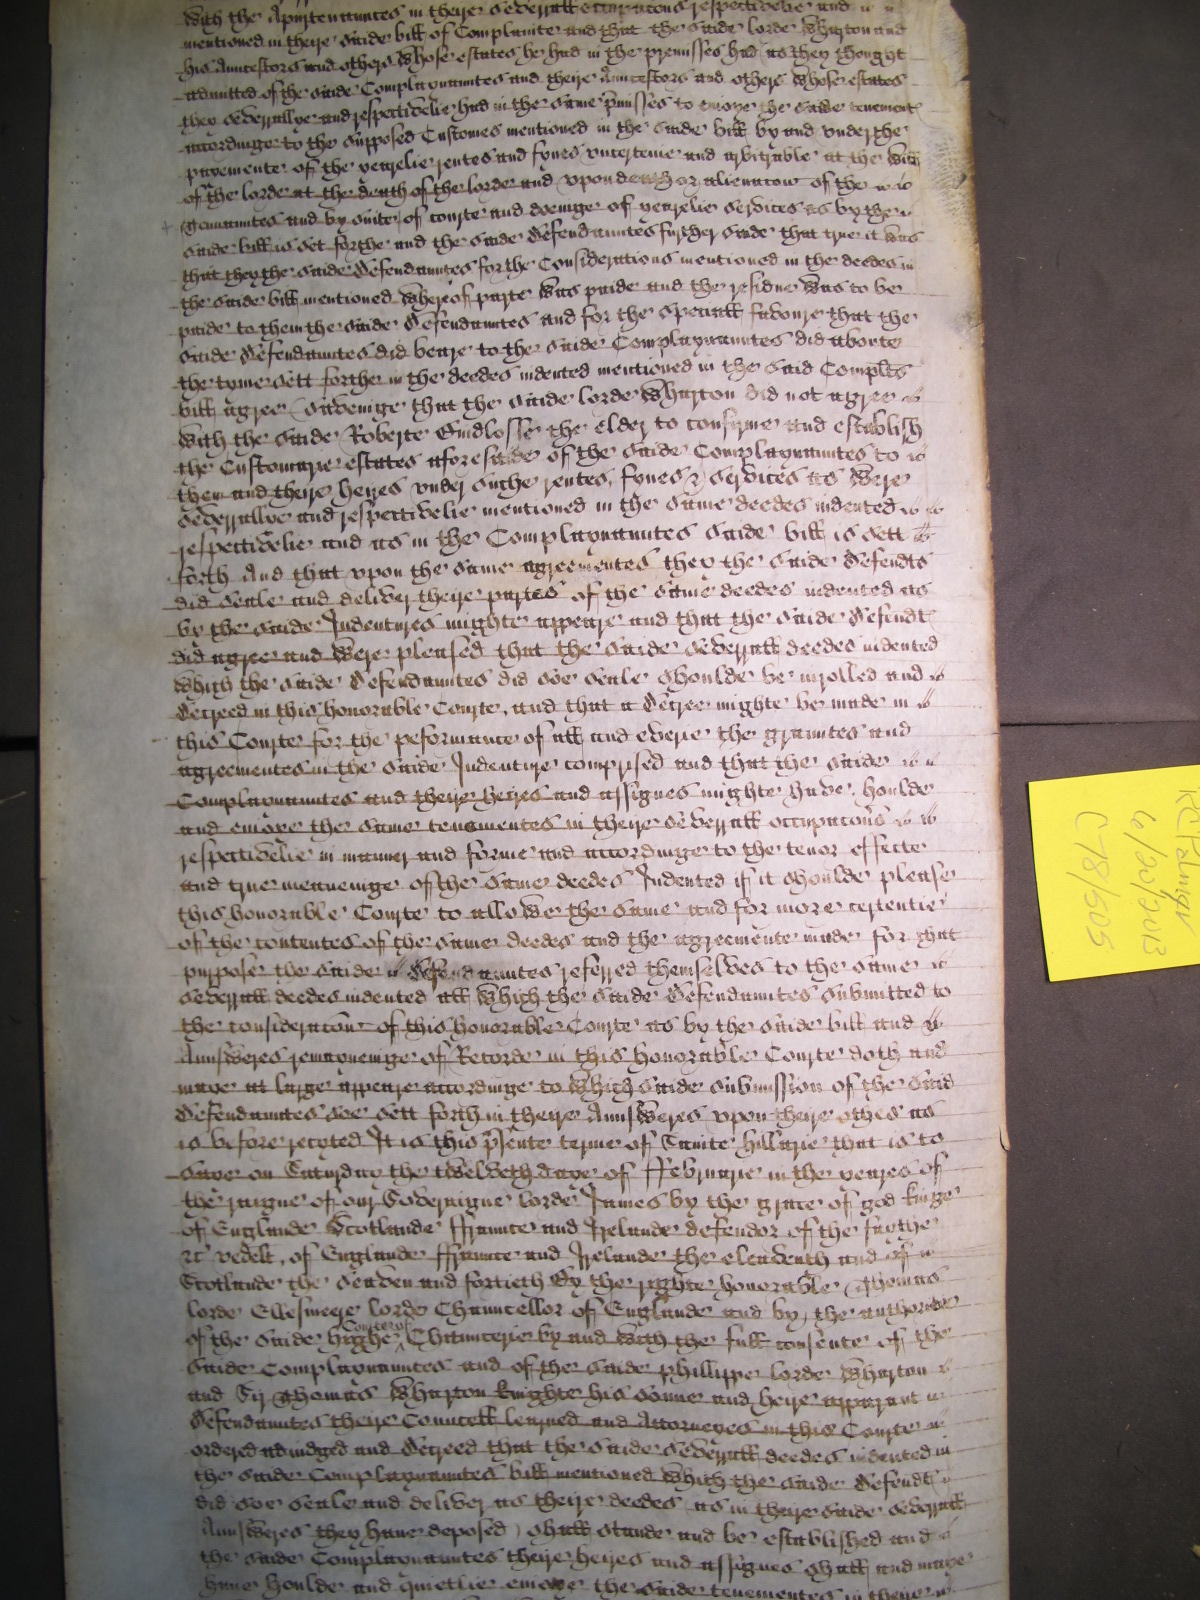 with the Apurtenaunces in theire severall occupacons respectivelie and
mentioned in theire saide bill of Complainte and that the saide lorde Wharton and
his Auncestors and others whose estates he had in the premisses had as they thought
admitted of the saide Complaynauntes and theire Auncestors and others whose estates
they severallye and respectivelie had in the same pmisses to enioye the saide tenement
accordinge to the supposed Customes mentioned in the saide bill by and under the
paymente of the yearelie rentes and fynes uncerteine and arbitrable at the will
of the lorde at the death of the lorde and upon death or alienacon of the
tennauntes and by suite of courte and doeinge of yearelie services as by the
saide bill is set forthe and the saide defendauntes further saide that true it was
that they the saide defendauntes for the Considerations mentioned in the deedes in
the saide bill mentioned whereof parte was paide and the residue was to be
paide to them the saide defendauntes and for the speciall favoure that the
saide defendauntes did beare to the saide Complaynauntes did aboute
the tyme sett forthe in the deedes indented mentioned in the said Complts
bill agree (savinge that the saide lorde Wharton did not agree
with the saide Roberte Gudlosse the elder to confirme and establish
the Customarie estates aforesaide of the saide Complaynauntes to
them and theire heires under suche rentes, fynes & services as were
severallye and respectivelie mentioned in the same deedes indented
respectivelie and as in the Complaynauntes saide bill is sett
forth And that upon the same agreementes they the saide defendts
did seale and deliver theire partes of the same deedes indented as
by the saide Indentures mighte appeare and that the saide defendt
did agree and were pleased that the saide severall deedes indented
which the saide defendauntes did soe seale shoulde be inrolled and
decreed in this honorable Courte, and that a decree mighte be made in
this Courte for the pformance of all and everie the grauntes and
agreementes in the saide Indenture comprised and that the saide
Complaynauntes and theire heires and assignes mighte have, houlde
and enioye the same tenementes in theire severall occupacons
respectivelie in manner and forme and accordinge to the tenor effecte
and true meaneinge of the same deedes Indented if it shoulde please
this honorable Courte to allowe the same and for more certentie
of the contentes of the same deedes and the agreemente made for that
purpose the saide defendauntes referred themselves to the same
severall deedes indented all which the saide defendauntes submitted to
the consideracon of this honorable Courte as by the saide bill and
Aunsweres remayneinge of Recorde in this honorable Courte doth and
maye at large appeare accordinge to which saide submission of the said
defendauntes soe sett forth in theire Aunsweres upon theire othes as
is before recyted It is this psente terme of Sainte hillarie that is to
saye on Saturday the twelveth daye of ffebruarie in the yeares of
the raigne of our Soveraigne lorde James by the grace of god kinge
of Englande Scotlande ffraunce and Irelande defendor of the faythe
&c vedelt, of Englande ffraunce and Irelande the eleaventh and of
Scotlande the seaven and fortieth By the righte honorable Thomas
lorde Ellesmere lorde Chauncellor of Englande and by the authoritie
of the saide highe Courte of Chauncerie by and with the full consente of the
saide Complaynauntes and of the saide phillippe lorde Wharton
and Sir Thomas Wharton knighte his sonne and heire apparant
defendauntes theire Councell learned and Attorneyes in this Courte
ordered adiudged and decreed that the saide severall deedes indented in
the saide Complaynauntes bill mentioned which the saide defendt
did soe seale and deliver as theire deedes as in theire saide severall
Aunsweres they have deposed, shall stande and be established and
the saide Complaynauntes theire heires and assignes shall and maye
have houlde and quietlie enioye the saide tenementes in theire
6/20/2013
C78/505